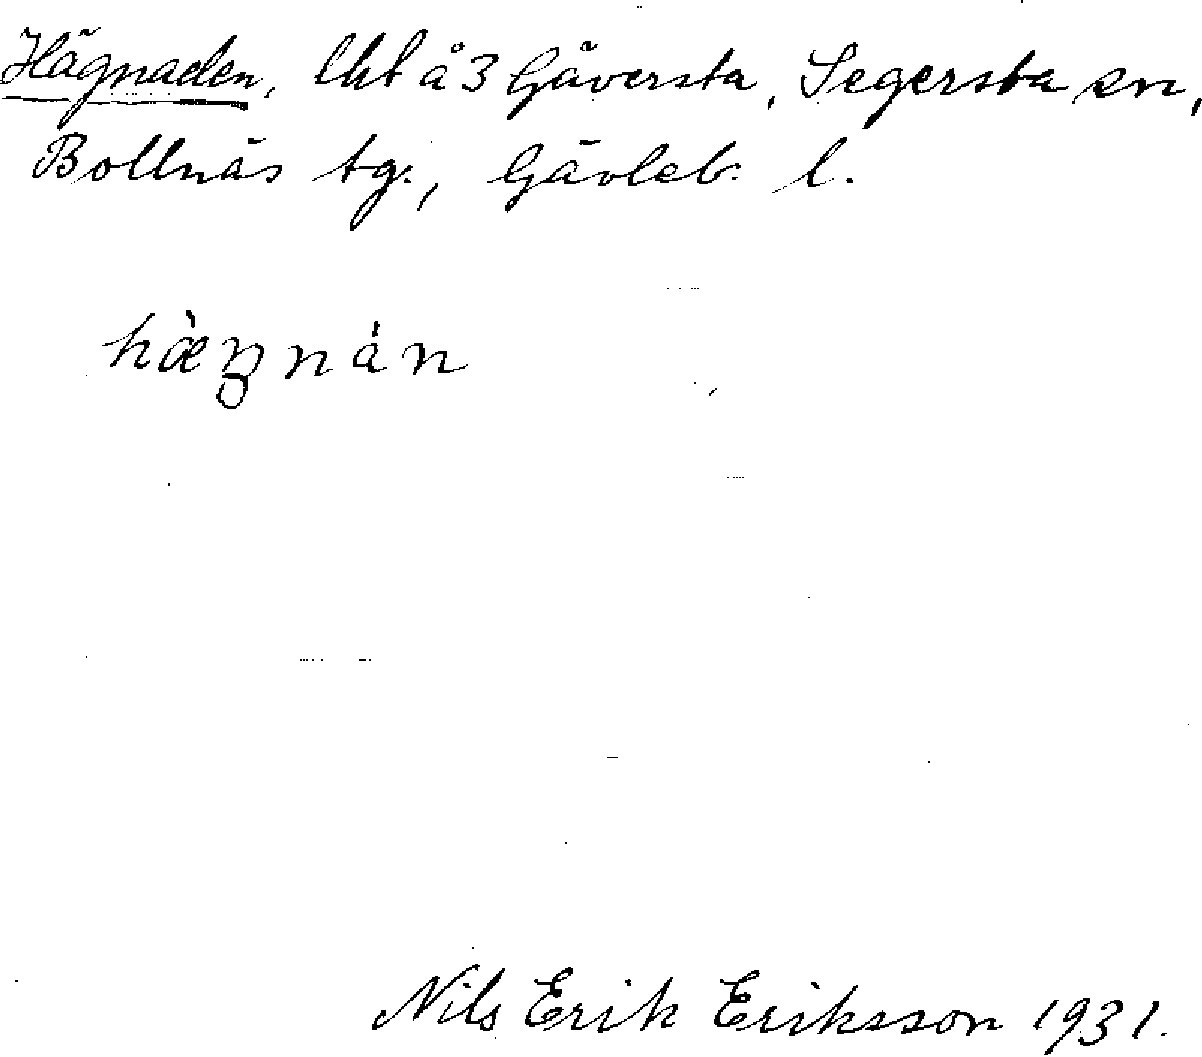 Hägnaden, lht å 3 Gäversta, Segersta sn,
Bollnäs tg., Gävleb. l.
hæ̀ŋnán
Nils Erik Eriksson 1931.